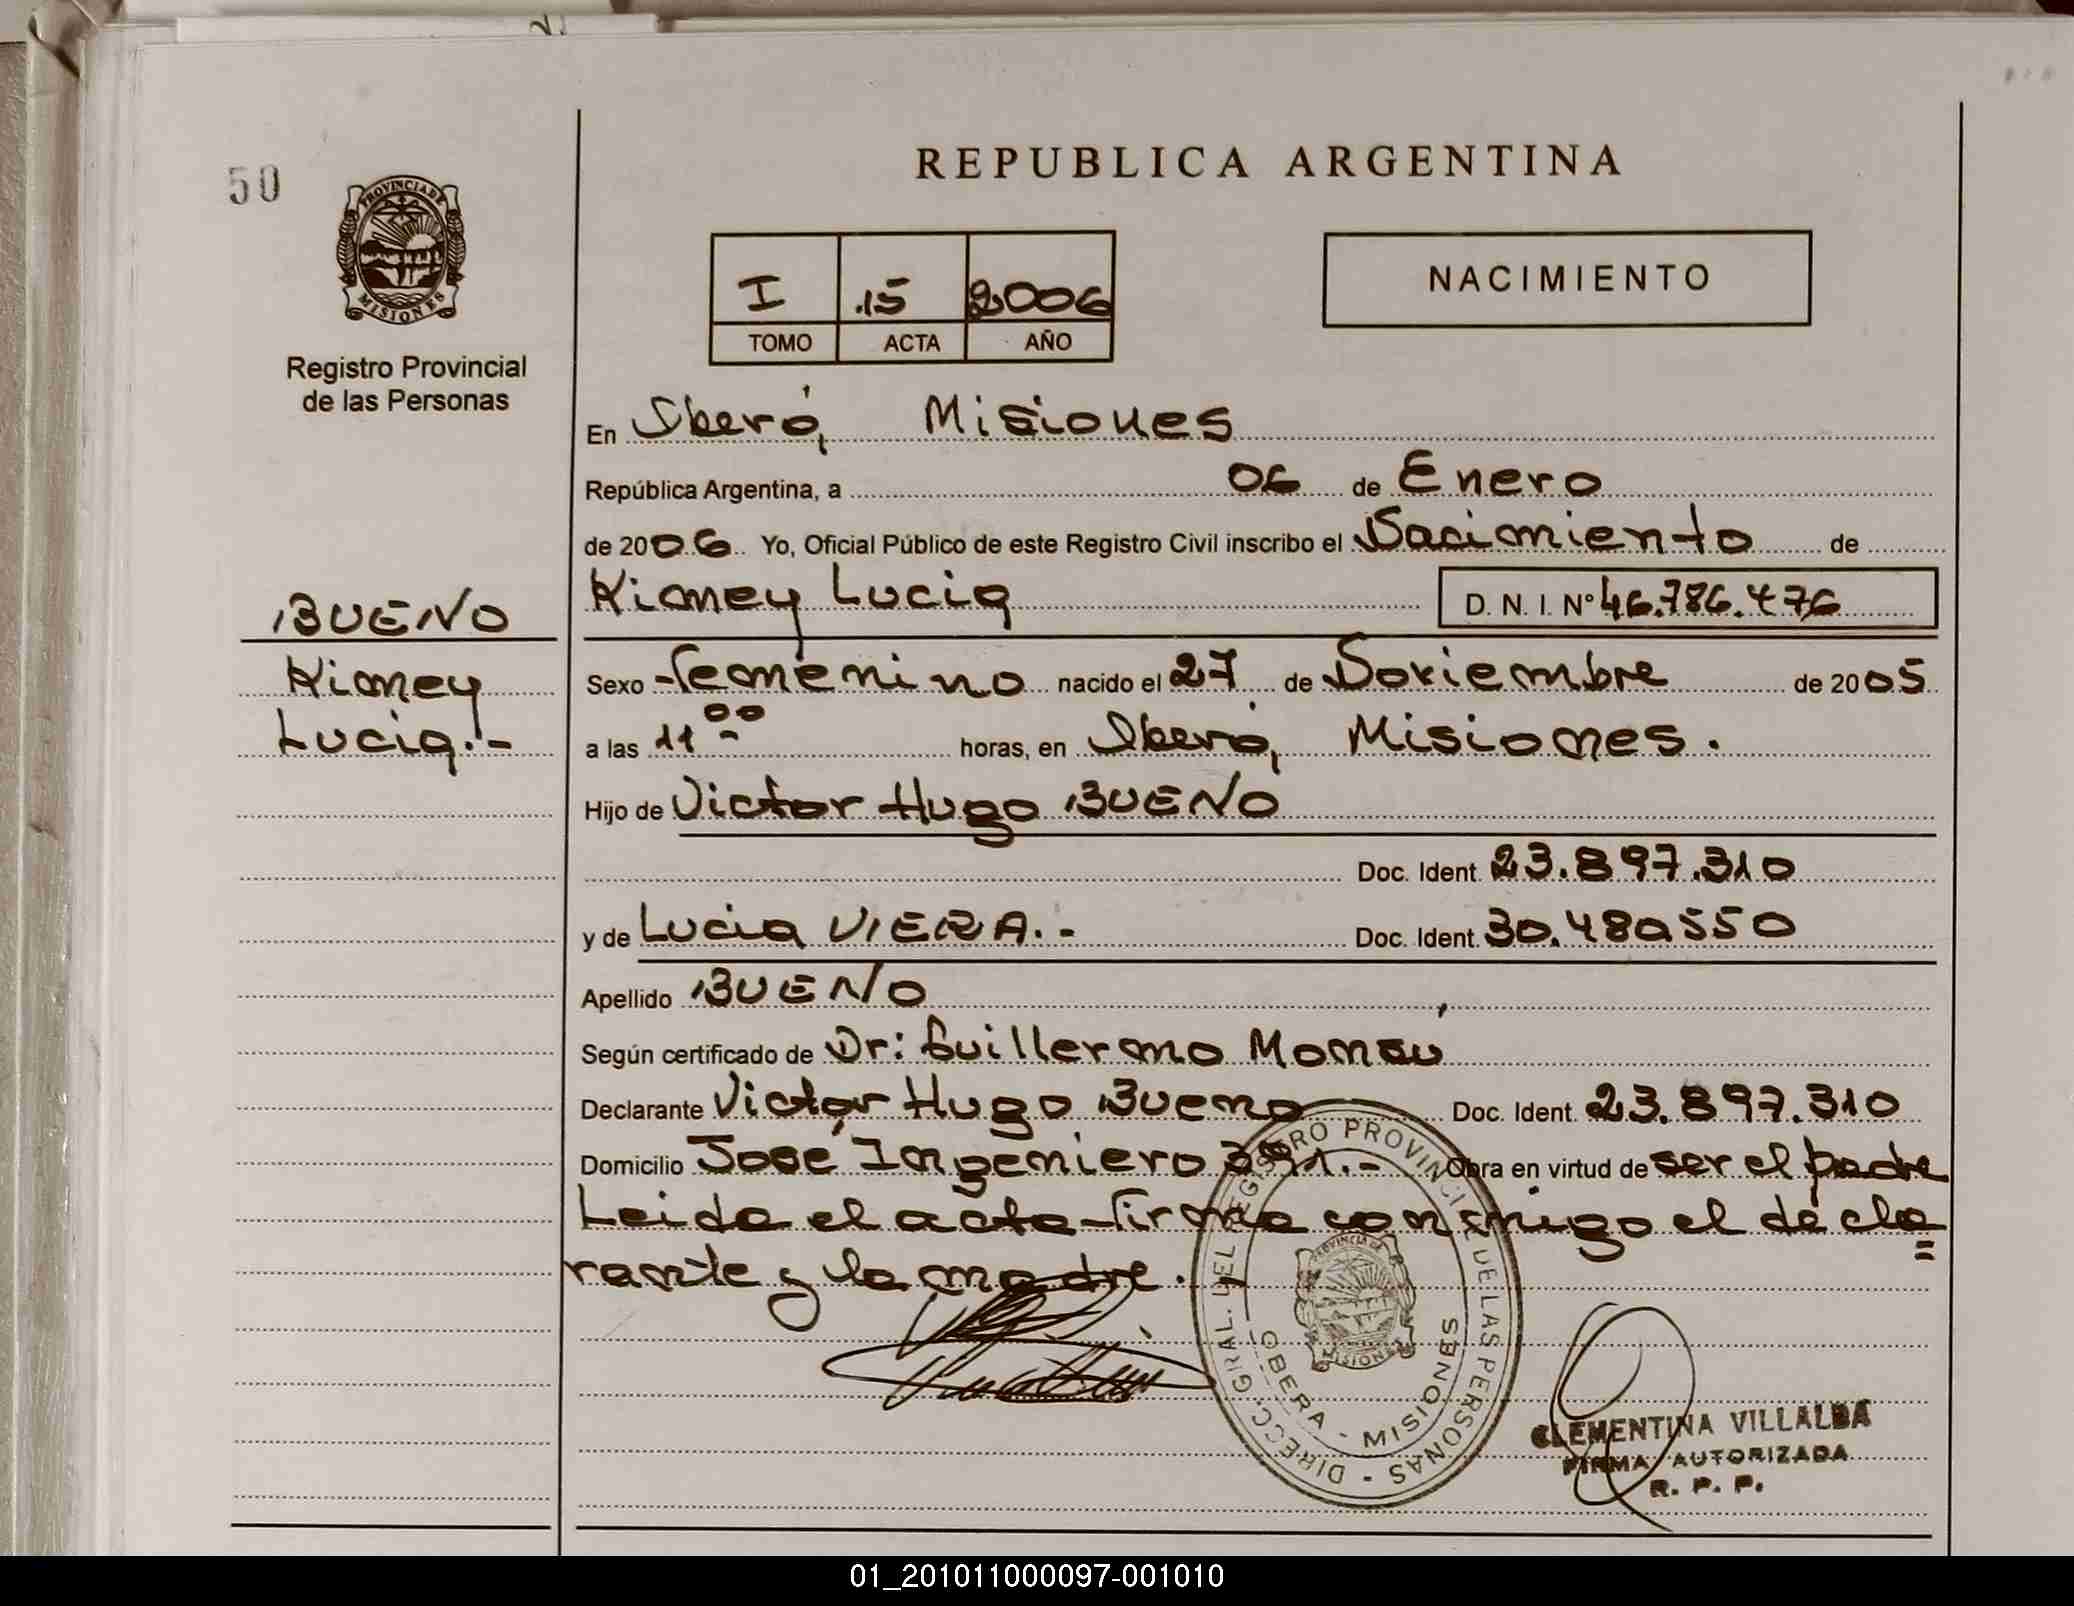 50
REPUBLICA ARGENTINA
PROVINCIA DE
MISIONES
I .15 2006
TOMO ACTA AÑO
NACIMIENTO
Registro Provincial
de las Personas
En Oberá, Misiones
República Argentina, a 06 de Enero
de 2006 Yo, Oficial Público de este Registro Civil inscribo el Nacimiento de
BUENO
Kimey Lucia D. N. I. Nº 46.786.476
Kimey
Sexo Femenino nacido el 27 de Noviembre de 2005
Lucia.-
a las 11 00 horas, en Oberá, Misiones.
Hijo de Victor Hugo BUENO
Doc. Ident. 23.897.310
y de Lucia VIERA.- Doc. Ident. 30.480550
Apellido BUENO
Según certificado de Dr: Guillermo
Declarante Victor Hugo Bueno Doc. Ident. 23.897.310
Domicilio José Ingeniero 391.- Obra en virtud de ser el padre
Leida el acta firma conmigo el decla=
rante y la madre.
DIRECC. GRAL. DEL REGISTRO PROVINCIAL DE LAS PERSONAS -
PROVINCIA DE
MISIONES
OBERA - MISIONES
CLEMENTINA VILLALBA
FIRMA AUTORIZADA
R. P. P.
01_201011000097-001010